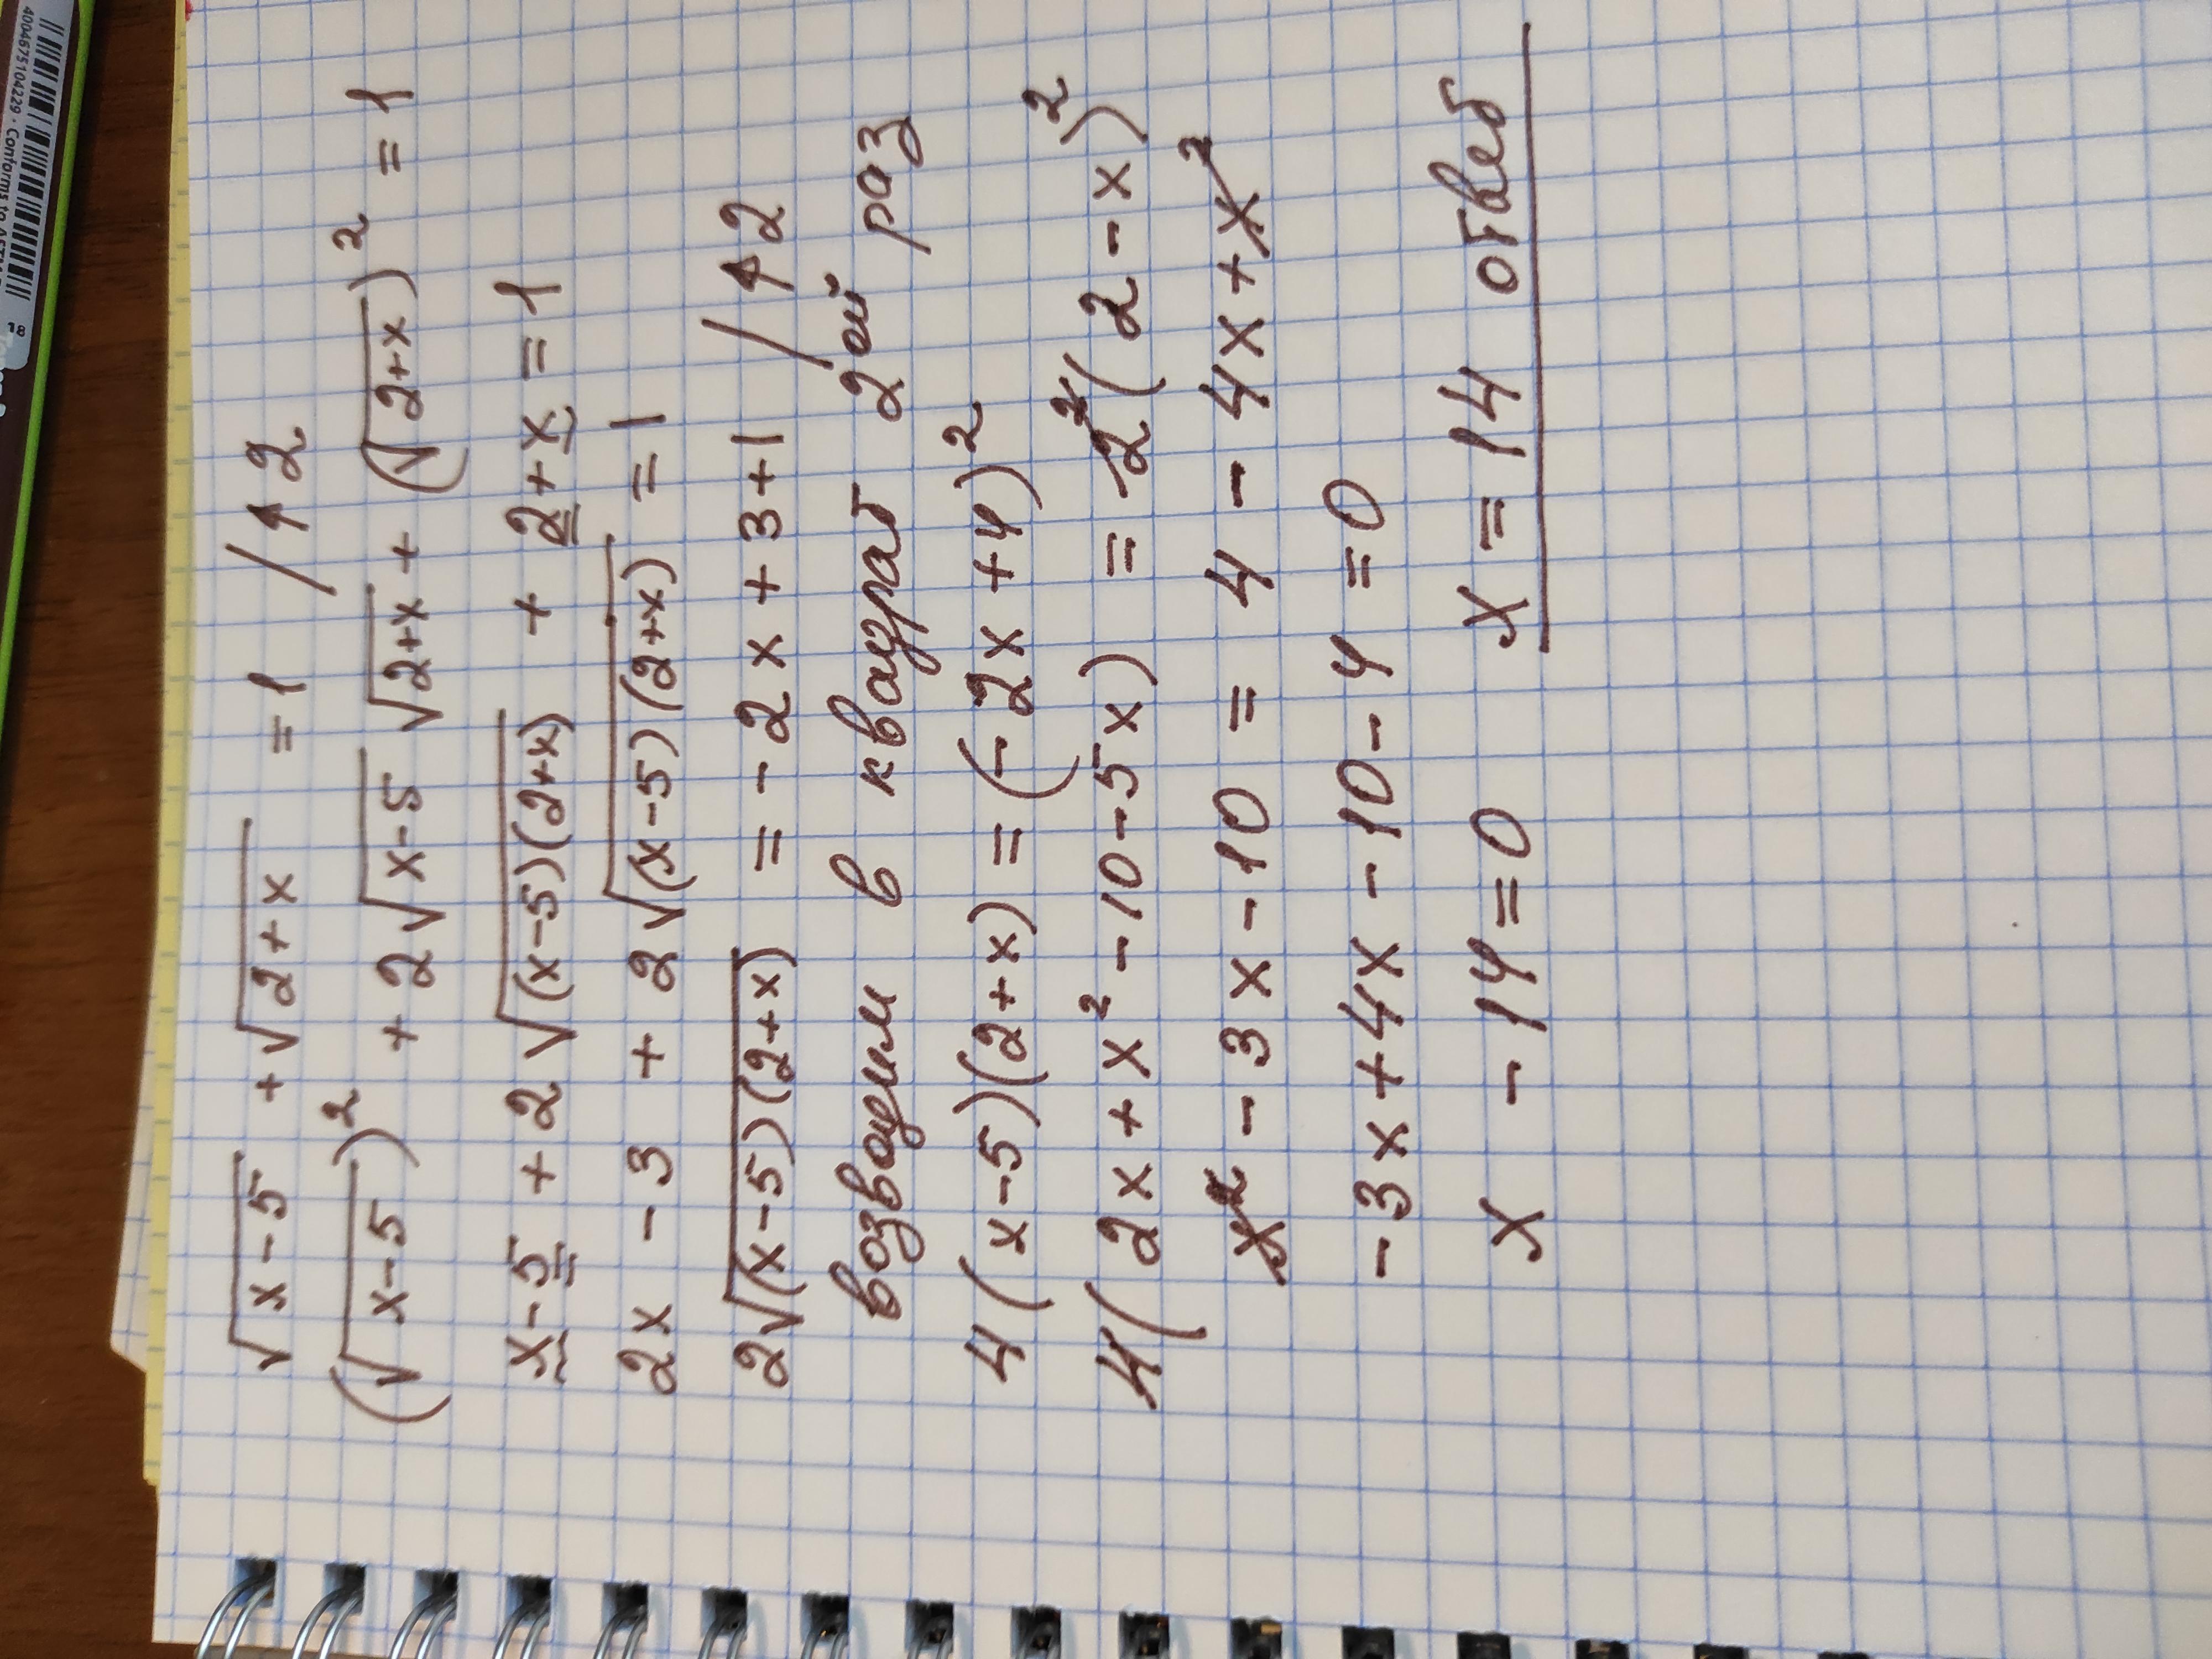 √x-5 + √2+x = 1 / ↑2
(√x-5)² + 2√x-5 √2+x + (√2+x)² = 1
x-5 + 2√(x-5)(2+x) + 2+x = 1
2x - 3 + 2√(x-5)(2+x) = 1
2√(x-5)(2+x) = -2x + 3+1 / ↑2
возводим в квадрат 2ой раз
4(x-5)(2+x) = (-2x +4)²
4(2x + x² -10-5x) = 2²(2-x)²
x² -3x-10 = 4 - 4x+x²
-3x+4x-10-4=0
x -14=0 x=14 ответ
4004675104229 · Conforms to
18